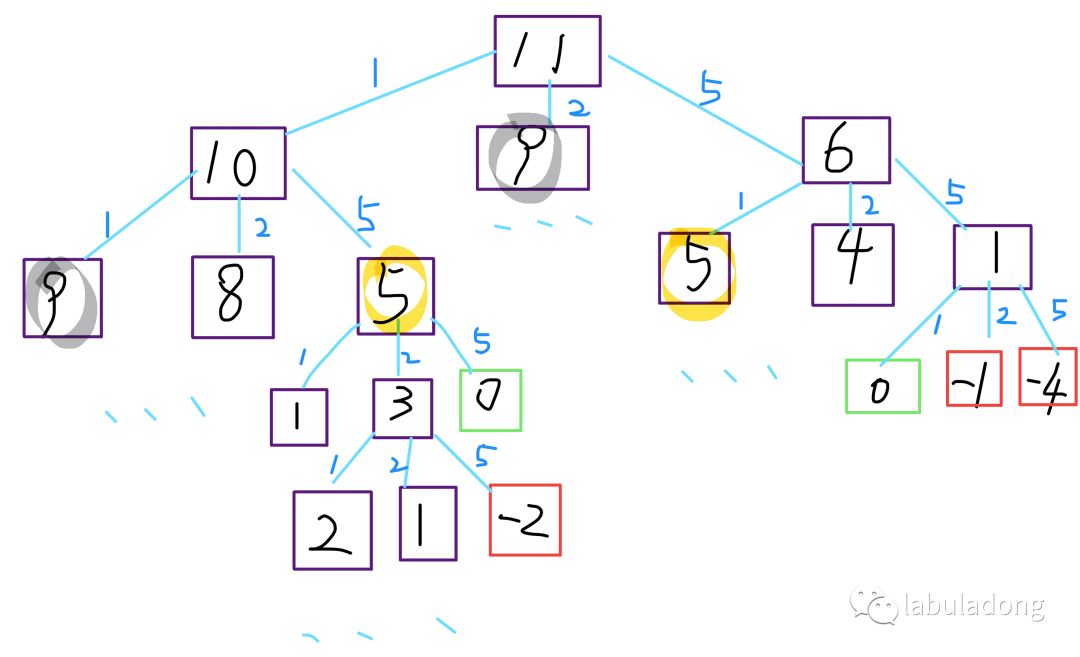 11
1 2 5
10 9 6
1 2 5 1 2 5
9 8 5 5 4 1
1 2 5 1 2 5
1 3 0 0 -1 -4
1 2 5
2 1 -2
labuladong